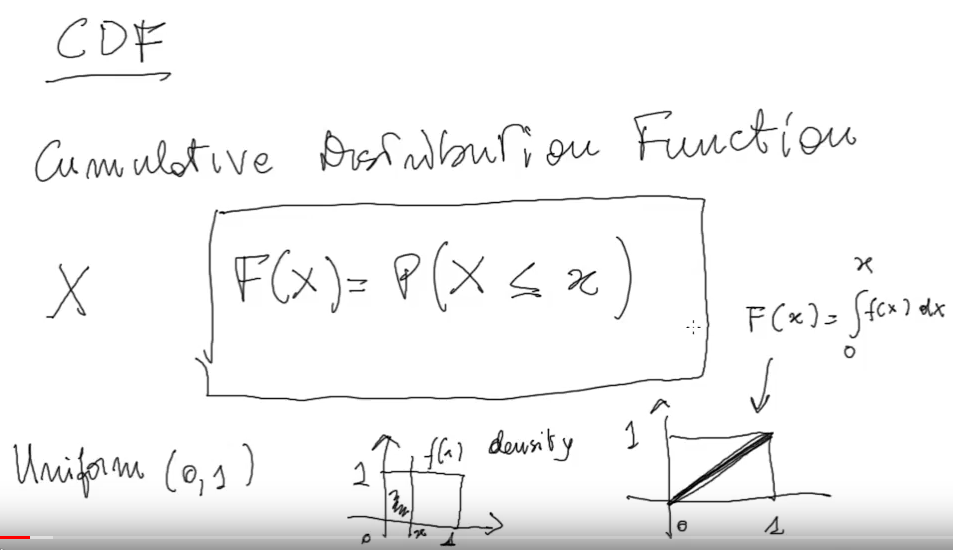 CDF
Cumulative Distribution Function
X F(X) = P(X ≤ x)
F(x) = ∫₀ˣ f(x) dx
Uniform (0,1)
1 f(x) density
0 x 1
1
0 1